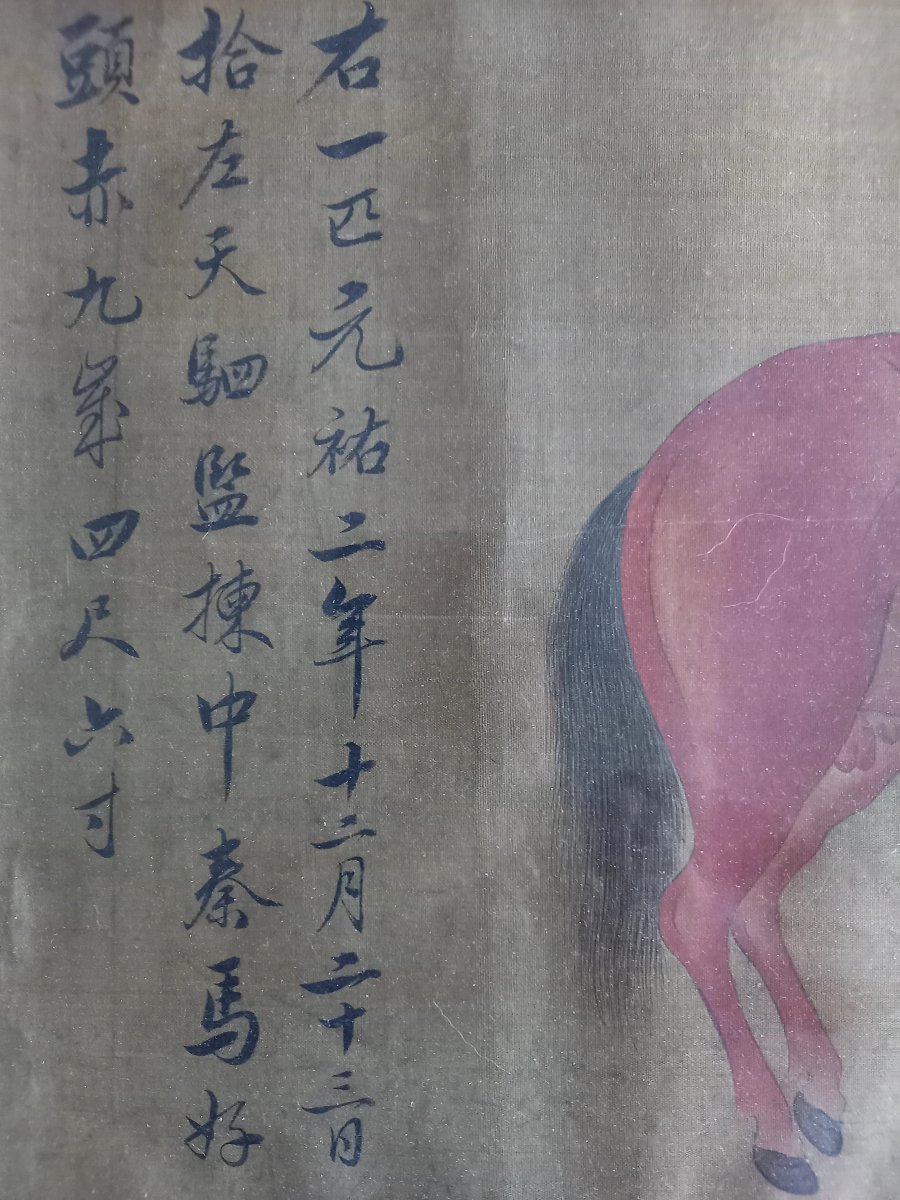 右一匹元祐二年十二月二十三日
拾左天駟監揀中秦馬好
頭赤九嵗四尺六寸